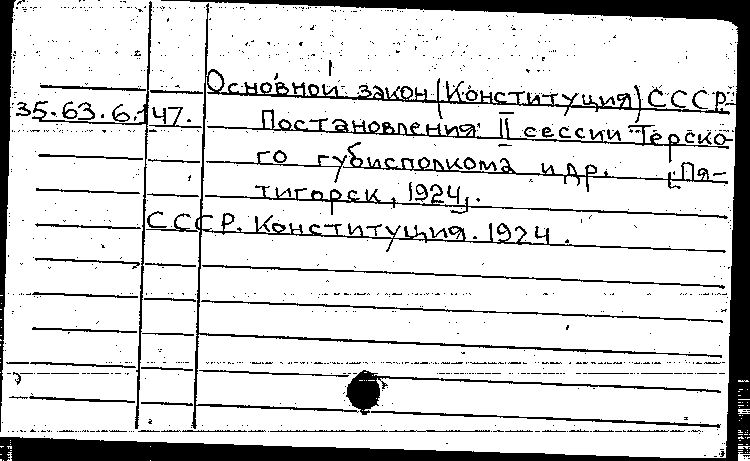 Основной закон (Конституция) СССР.
35.63.6.147. Постановления II сессии Терско-
го губисполкома и др. [Пя-
тигорск, 1924].
СССР. Конституция. 1924.